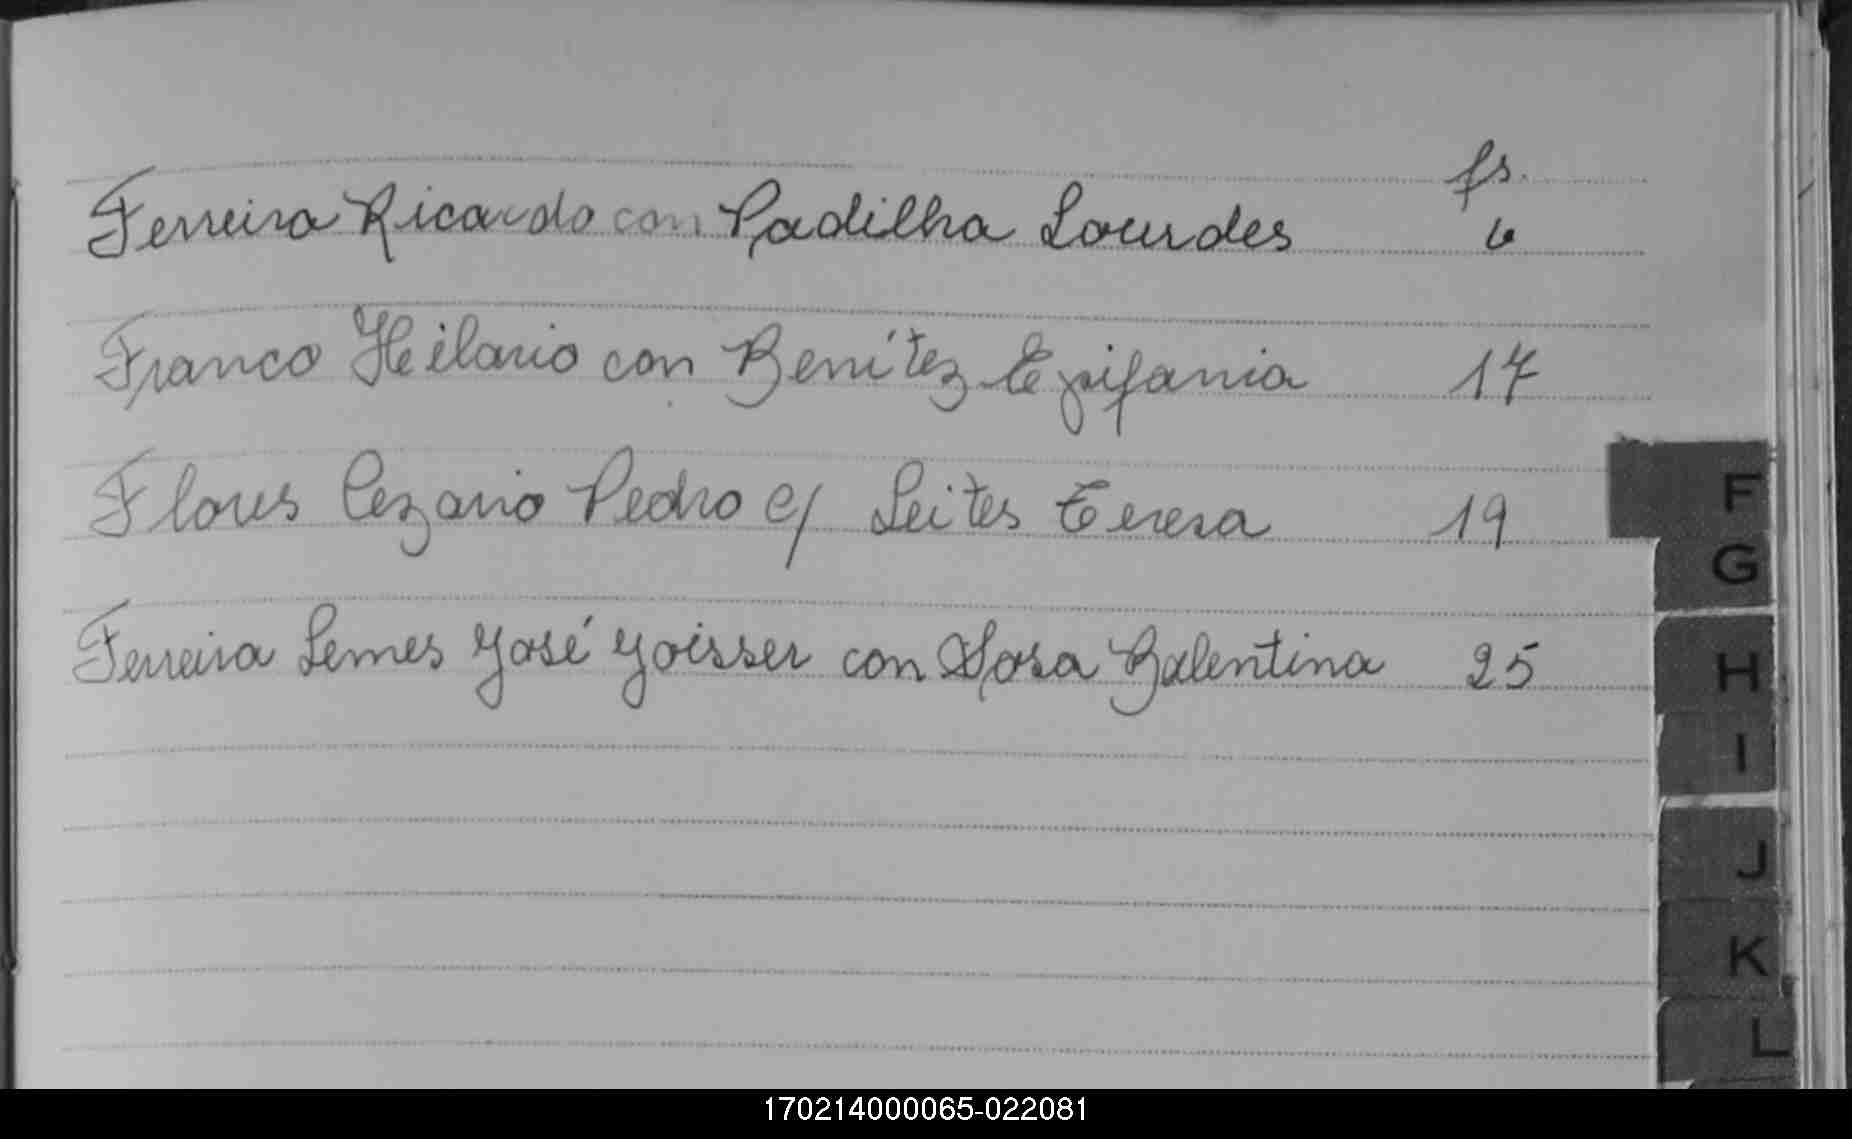 fs.
Ferreira Ricardo con Padilha Lourdes 6
Franco Hilario con Benítez Epifania 17
Flores Cezario Pedro c/ Leites Teresa 19
Ferreira Lemes José Yoisser con Sosa Balentina 25
F
G
H
I
J
K
L
170214000065-022081